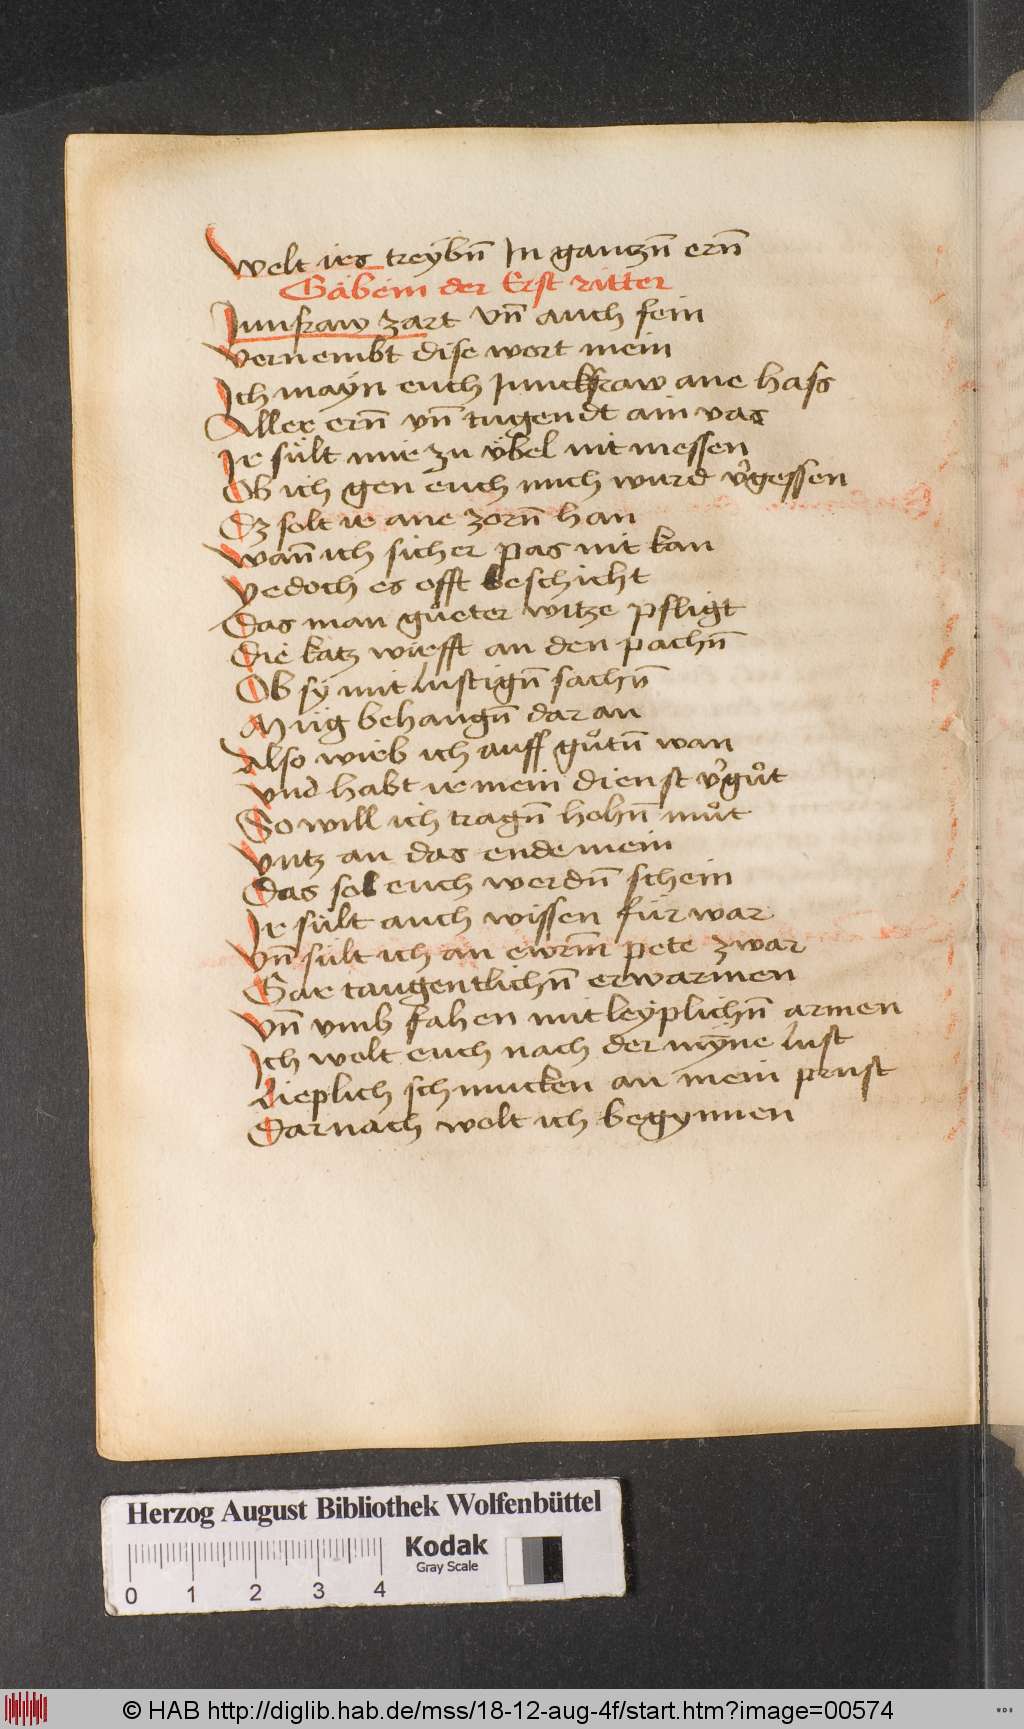 Welt irs treÿbn̄ In gantzn̄ ern̄
Gäbein der Erst ritter
Junfraw zart Vn̄ auch fein
Vernembt dise wort mein
Ich maÿn euch Junckfraw ane hass
Aller ern̄ vn̄ tugendt ain vas
Ir sült mir zu vbel nit messen
Ob ich gen euch mich wurd v᾽gessen
Dz solt ir ane zorn̄ han
Wan̄ ich sicher pas nit kan
Yedoch es offt beschicht
Das man gůeter witze pfligt
Die katz wirfft an den pachn̄
Ob sÿ mit lustign̄ sachn̄
Müg behangn̄ dar an
Also wirb ich auff gůtn̄ wan
Vnd habt ir mein dienst v᾽gůt
So will ich tragn̄ hohn̄ můt
Vntz an das ende mein
Das sol euch werdn̄ schein
Ir sült auch wissen für war
Vn̄ sült ich an ewrm̄ pete zwar
Gar taugentlichn̄ erwarmen
Vn̄ vmb fahen mit leyplichn̄ armen
Ich wolt euch nach der mÿne lust
Lieplich schmucken an mein prust
Darnach wolt ich begynnen
Herzog August Bibliothek Wolfenbüttel
Kodak
Gray Scale
0 1 2 3 4
© HAB http://diglib.hab.de/mss/18-12-aug-4f/start.htm?image=00574